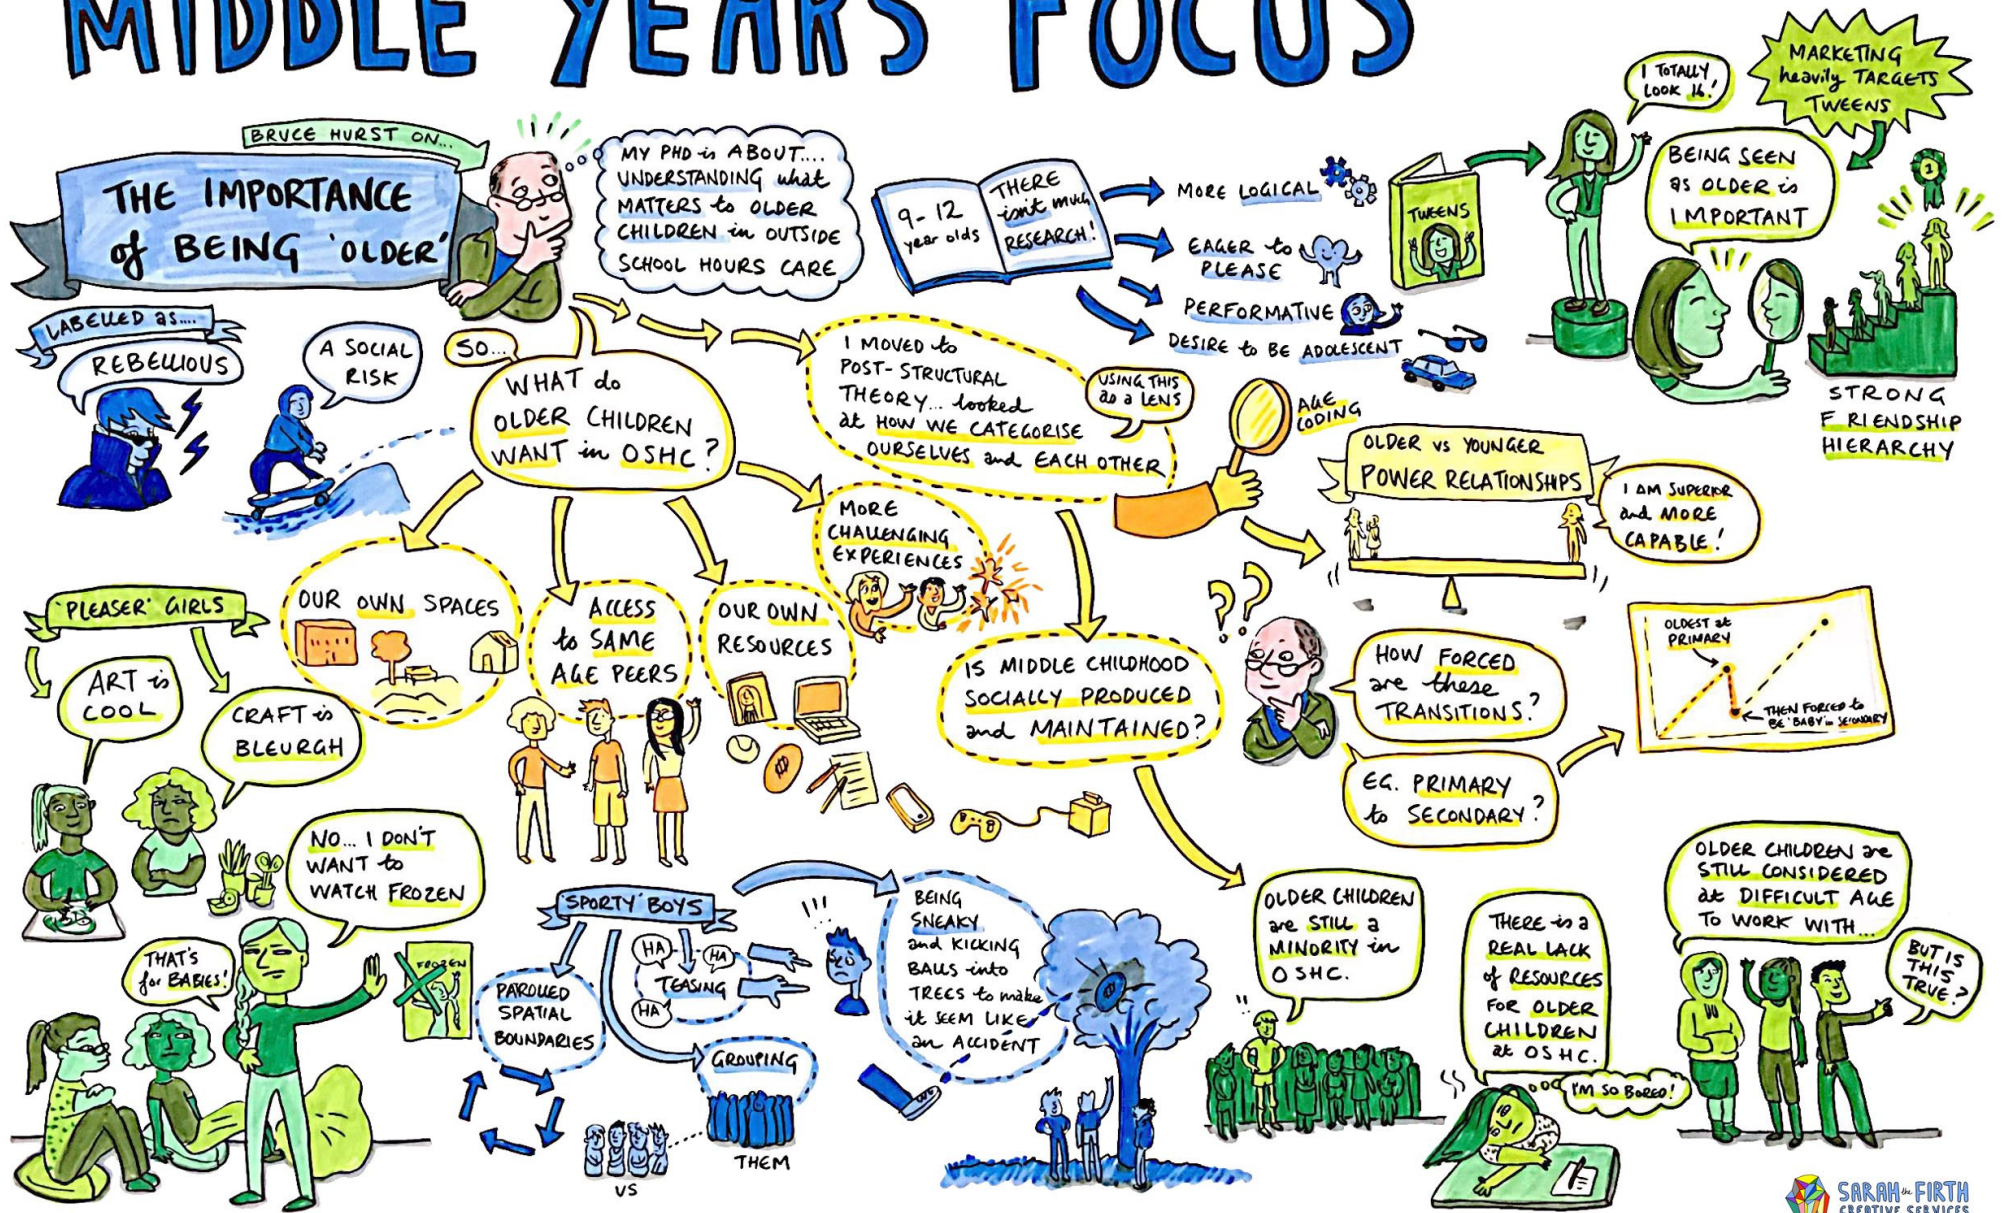 MIDDLE YEARS FOCUS
BRUCE HURST ON...
THE IMPORTANCE
of BEING 'OLDER'
MY PHD is ABOUT....
UNDERSTANDING what
MATTERS to OLDER
CHILDREN in OUTSIDE
SCHOOL HOURS CARE
9-12
year olds
THERE
isn't much
RESEARCH!
MORE LOGICAL
EAGER to
PLEASE
PERFORMATIVE
DESIRE to BE ADOLESCENT
TWEENS
I TOTALLY
LOOK 16!
MARKETING
heavily TARGETS
TWEENS
BEING SEEN
as OLDER is
IMPORTANT
1
STRONG
FRIENDSHIP
HIERARCHY
LABELLED as....
REBELLIOUS
A SOCIAL
RISK
SO...
WHAT do
OLDER CHILDREN
WANT in OSHC?
I MOVED to
POST-STRUCTURAL
THEORY... looked
at HOW WE CATEGORISE
OURSELVES and EACH OTHER
USING THIS
as a LENS
AGE
CODING
OLDER vs YOUNGER
POWER RELATIONSHIPS
I AM SUPERIOR
and MORE
CAPABLE!
OUR OWN SPACES
ACCESS
to SAME
AGE PEERS
OUR OWN
RESOURCES
MORE
CHALLENGING
EXPERIENCES
IS MIDDLE CHILDHOOD
SOCIALLY PRODUCED
and MAINTAINED?
??
HOW FORCED
are these
TRANSITIONS?
EG. PRIMARY
to SECONDARY?
OLDEST at
PRIMARY
THEN FORCED to
BE 'BABY' in SECONDARY
'PLEASER' GIRLS
ART is
COOL
CRAFT is
BLEURGH
NO... I DON'T
WANT to
WATCH FROZEN
THAT'S
for BABIES!
FROZEN
'SPORTY' BOYS
PAROLLED
SPATIAL
BOUNDARIES
HA
HA
TEASING
HA
GROUPING
VS
THEM
BEING
SNEAKY
and KICKING
BALLS into
TREES to make
it SEEM LIKE
an ACCIDENT
OLDER CHILDREN
are STILL a
MINORITY in
OSHC.
THERE is a
REAL LACK
of RESOURCES
FOR OLDER
CHILDREN
at OSHC.
I'M SO BORED!
OLDER CHILDREN are
STILL CONSIDERED
at DIFFICULT AGE
TO WORK WITH...
BUT IS
THIS
TRUE?
SARAH the FIRTH
CREATIVE SERVICES